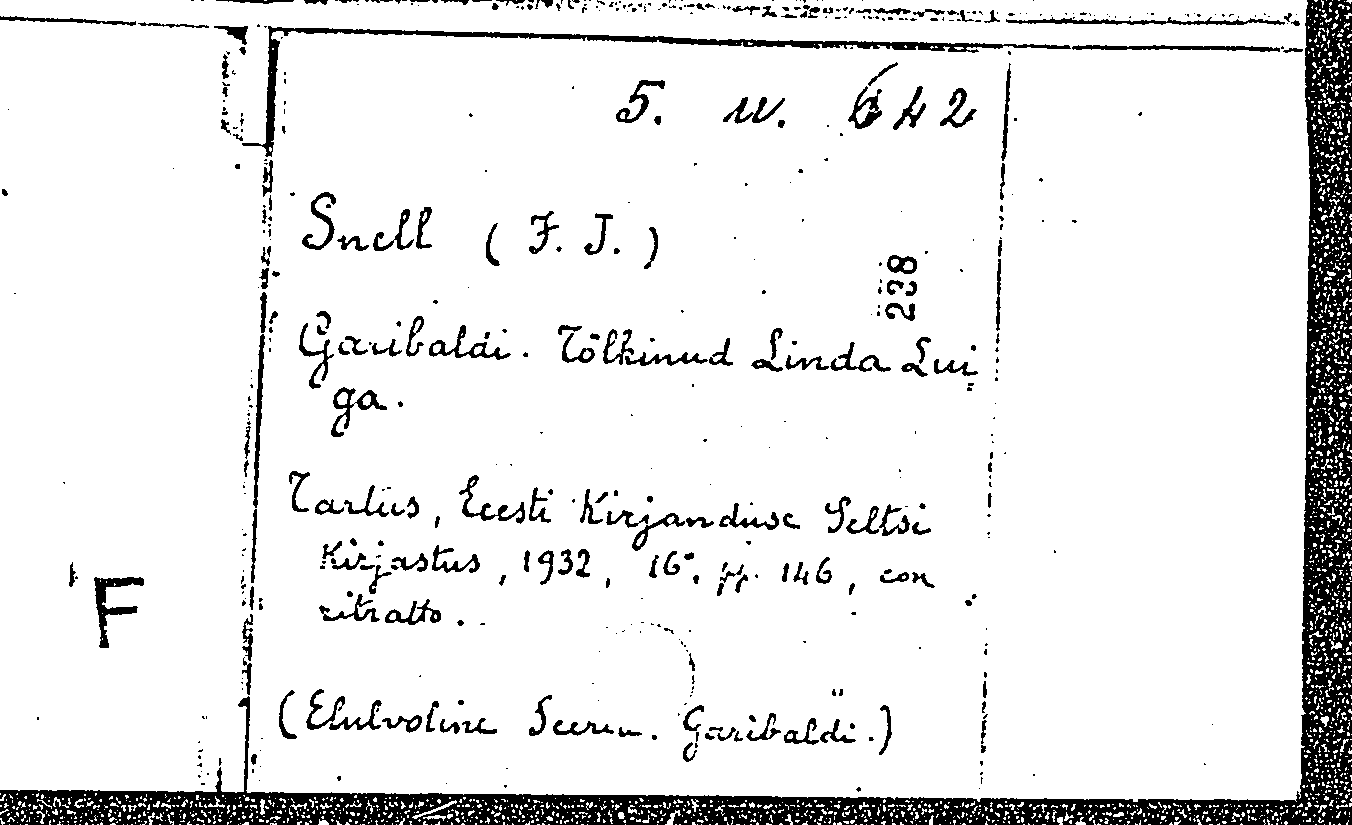 5. w. 642
Snell (F. J.)
238
Garibaldi. Tõlkinud Linda Lui
ga.
Tartus, Eesti Kirjanduse Seltsi
Kirjastus, 1932, 16°. pp. 146, con
ritratto.
F
(Elulvoline Seeria. Garibaldi.)